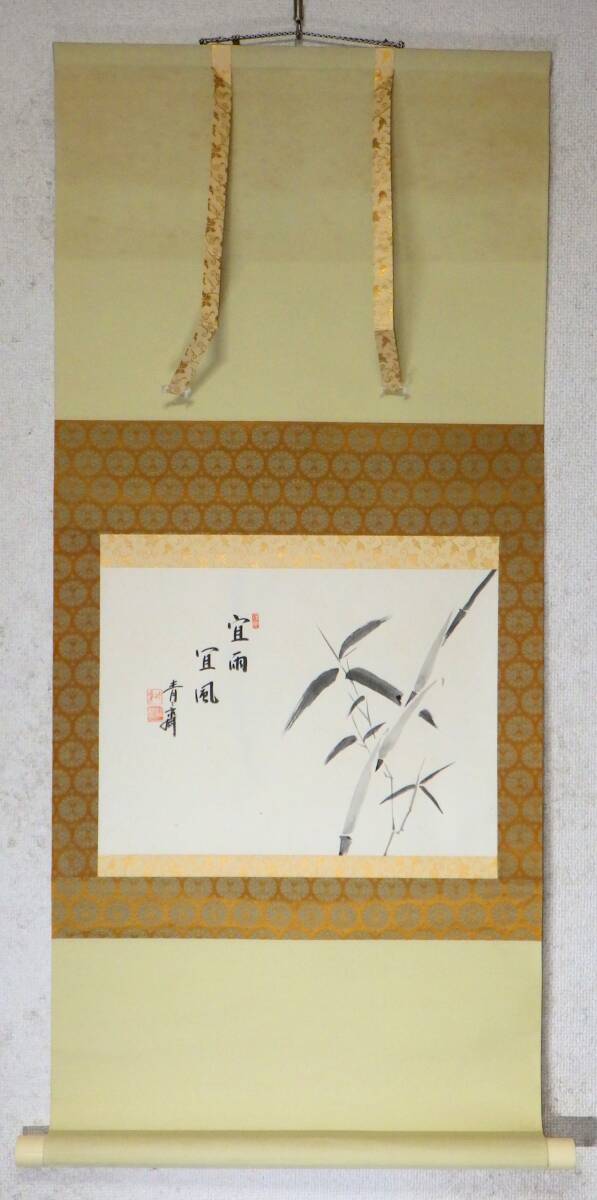 宜雨
宜風
青斎